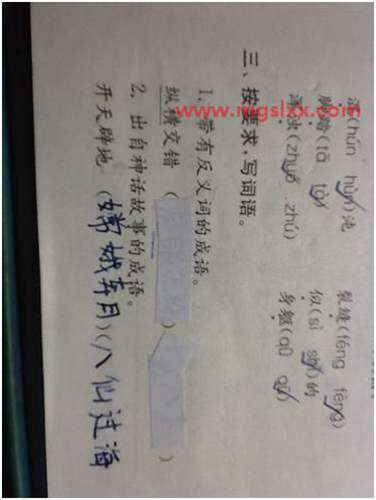 混(hún hùn)沌 裂缝(féng fèng)
脚踏(tā tà) 似(sì shì)的
浊(zhuó zhú) 身躯(qū qū)
三、按要求,写词语。
1. 带有反义词的成语。
纵横交错 ( ) (
2. 出自神话故事的成语。
开天辟地 (嫦娥奔月)(八仙过海
www.mgslxx.com